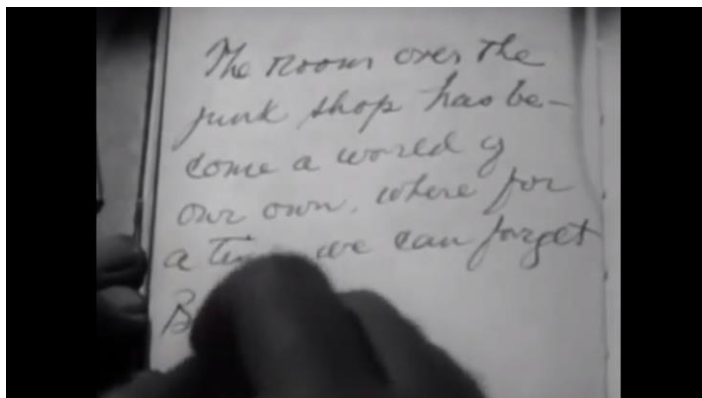 The room over the
junk shop has be-
come a world of
our own, where for
a we can forget
B